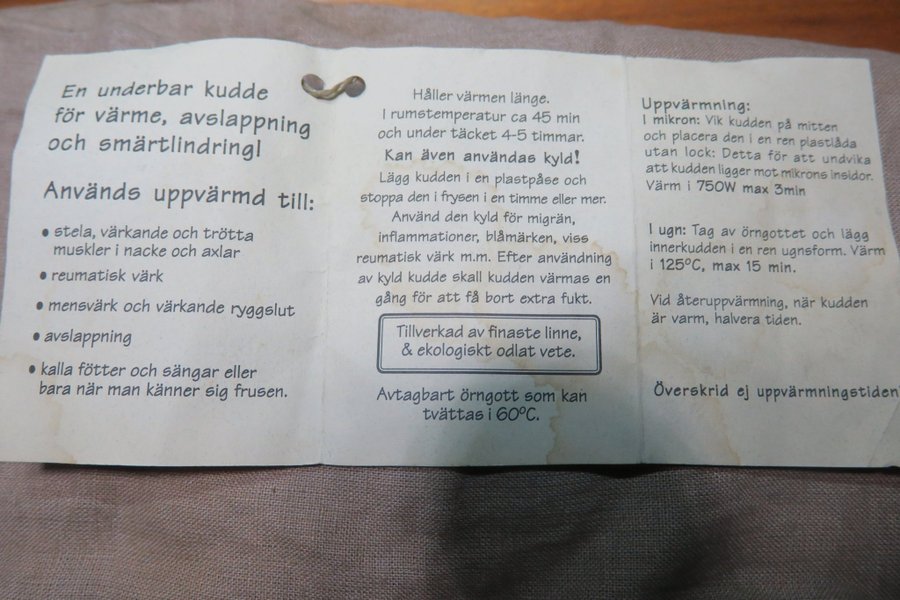 En underbar kudde
för värme, avslappning
och smärtlindring!
Används uppvärmd till:
• stela, värkande och trötta
muskler i nacke och axlar
• reumatisk värk
• mensvärk och värkande ryggslut
• avslappning
• kalla fötter och sängar eller
bara när man känner sig frusen.
Håller värmen länge.
I rumstemperatur ca 45 min
och under täcket 4-5 timmar.
Kan även användas kyld!
Lägg kudden i en plastpåse och
stoppa den i frysen i en timme eller mer.
Använd den kyld för migrän,
inflammationer, blåmärken, viss
reumatisk värk m.m. Efter användning
av kyld kudde skall kudden värmas en
gång för att få bort extra fukt.
Tillverkad av finaste linne,
& ekologiskt odlat vete.
Avtagbart örngott som kan
tvättas i 60°C.
Uppvärmning:
I mikron: Vik kudden på mitten
och placera den i en ren plastlåda
utan lock: Detta för att undvika
att kudden ligger mot mikrons insidor.
Värm i 750W max 3min
I ugn: Tag av örngottet och lägg
innerkudden i en ren ugnsform. Värm
i 125°C, max 15 min.
Vid återuppvärmning, när kudden
är varm, halvera tiden.
Överskrid ej uppvärmningstiden